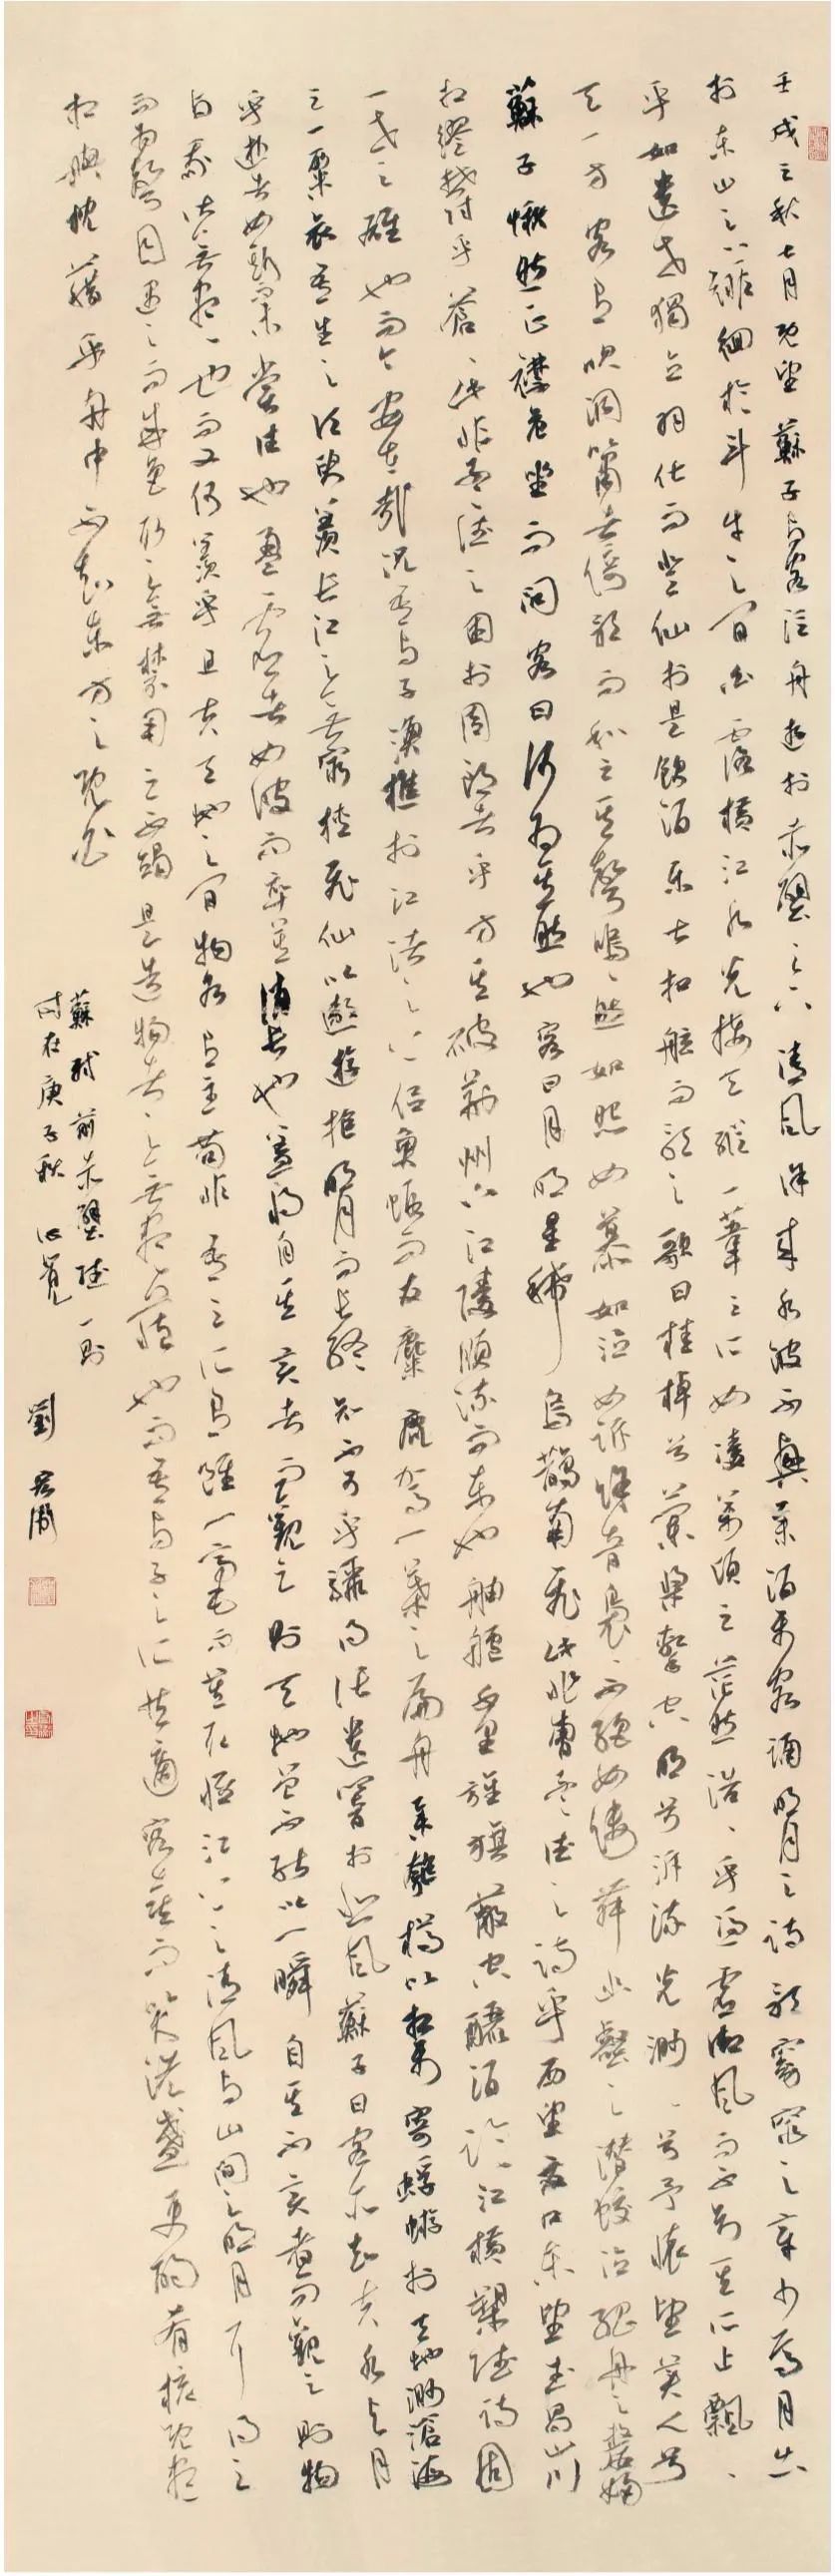 壬戌之秋七月既望蘇子與客泛舟遊於赤壁之下清風徐來水波不興舉酒屬客誦明月之詩歌窈窕之章少焉月出
於東山之上徘徊於斗牛之間白露橫江水光接天縱一葦之所如凌萬頃之茫然浩浩乎馮虛御風而不知其所止飄飄
乎如遺世獨立羽化而登仙於是飲酒樂甚扣舷而歌之歌曰桂棹兮蘭槳擊空明兮泝流光渺渺兮予懷望美人兮
天一方客有吹洞簫者倚歌而和之其聲嗚嗚然如怨如慕如泣如訴餘音裊裊不絕如縷舞幽壑之潛蛟泣孤舟之嫠婦
蘇子愀然正襟危坐而問客曰何為其然也客曰月明星稀烏鵲南飛此非曹孟德之詩乎西望夏口東望武昌山川
相繆鬱乎蒼蒼此非孟德之困於周郎者乎方其破荊州下江陵順流而東也舳艫千里旌旗蔽空釃酒臨江橫槊賦詩固
一世之雄也而今安在哉況吾與子漁樵於江渚之上侶魚蝦而友麋鹿駕一葉之扁舟舉匏樽以相屬寄蜉蝣於天地渺滄海
之一粟哀吾生之須臾羨長江之無窮挾飛仙以遨遊抱明月而長終知不可乎驟得託遺響於悲風蘇子曰客亦知夫水與月
乎逝者如斯而未嘗往也盈虛者如彼而卒莫消長也蓋將自其變者而觀之則天地曾不能以一瞬自其不變者而觀之則物
與我皆無盡也而又何羨乎且夫天地之間物各有主苟非吾之所有雖一毫而莫取惟江上之清風與山間之明月耳得之
而為聲目遇之而成色取之無禁用之不竭是造物者之無盡藏也而吾與子之所共適客喜而笑洗盞更酌肴核既盡
相與枕藉乎舟中不知東方之既白
蘇軾前赤壁賦一則
時在庚子秋
劉